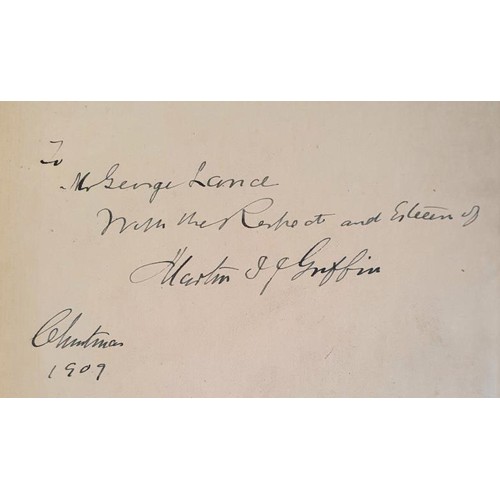 To
Mr George Lane
With the Respect and Esteem of
Martin I J Griffin
Christmas
1909